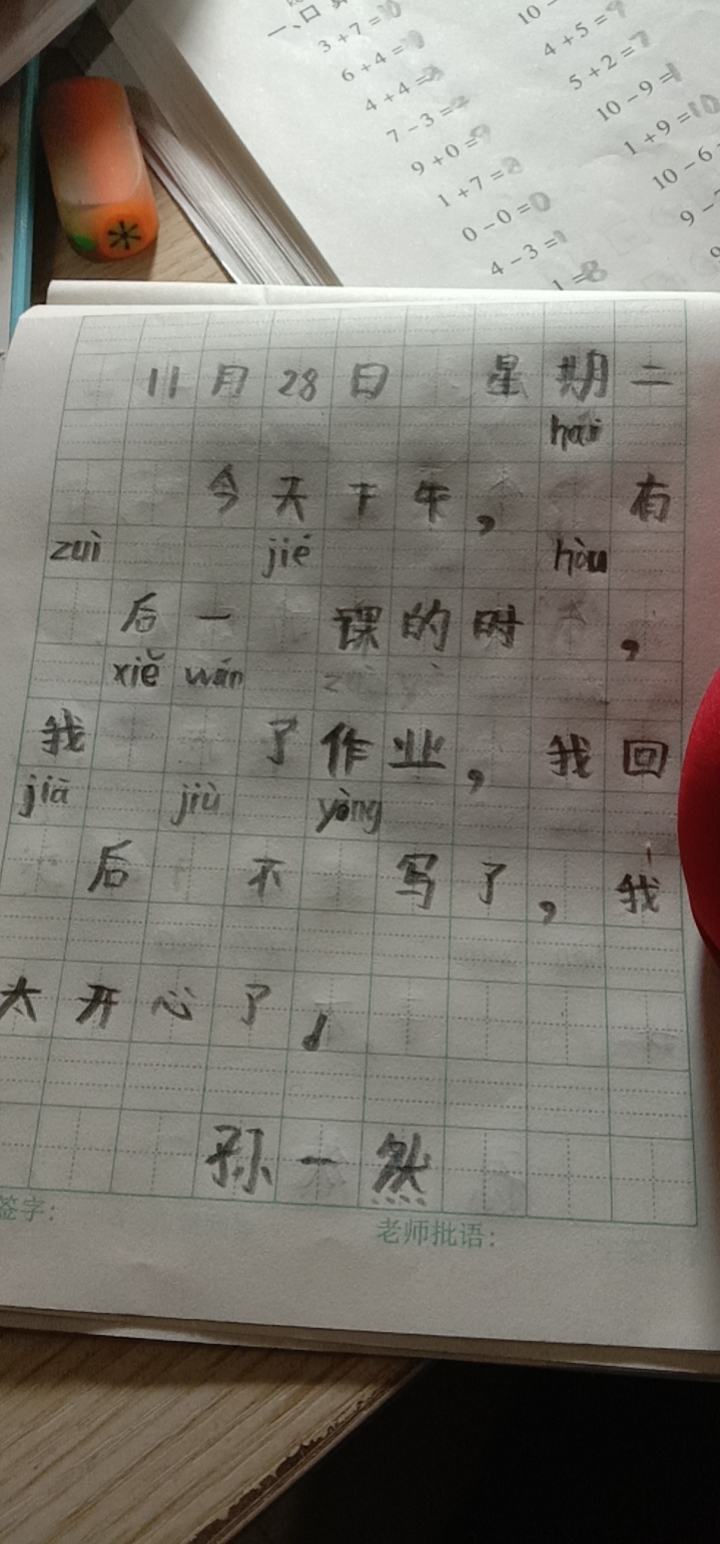 3+7=10
6+4=
4+4=
7-3=
9+0=9
1+7=8
0-0=0
4-3=1
1=8
10-
4+5=9
5+2=7
10-9=1
1+9=10
10-6
9-
11月28日 星期二
hái
今天下午， 有
zuì jié hòu
后一 课的时 ，
xiě wán
我 了作业，我回
jiā jiù yòng
后 不 写了，我
太开心了！
孙一然
签字：
老师批语：